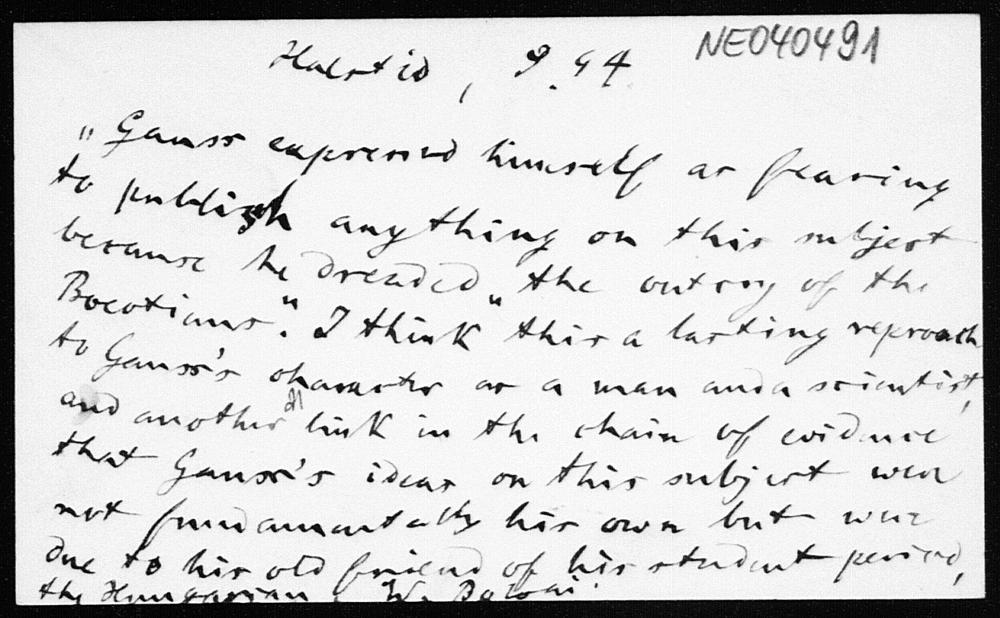 NE040491
Halstid, 9. 94
„Gauss expressed himself as fearing
to publish anything on this subject
because he dreaded „the outcry of the
Boeotians." I think this a lasting reproach
to Gauss's character as a man and a scientist,
and another link in the chain of evidence
that Gauss's ideas on this subject were
not fundamentally his own but were
due to his old friend of his student period,
the Hungarian, W.